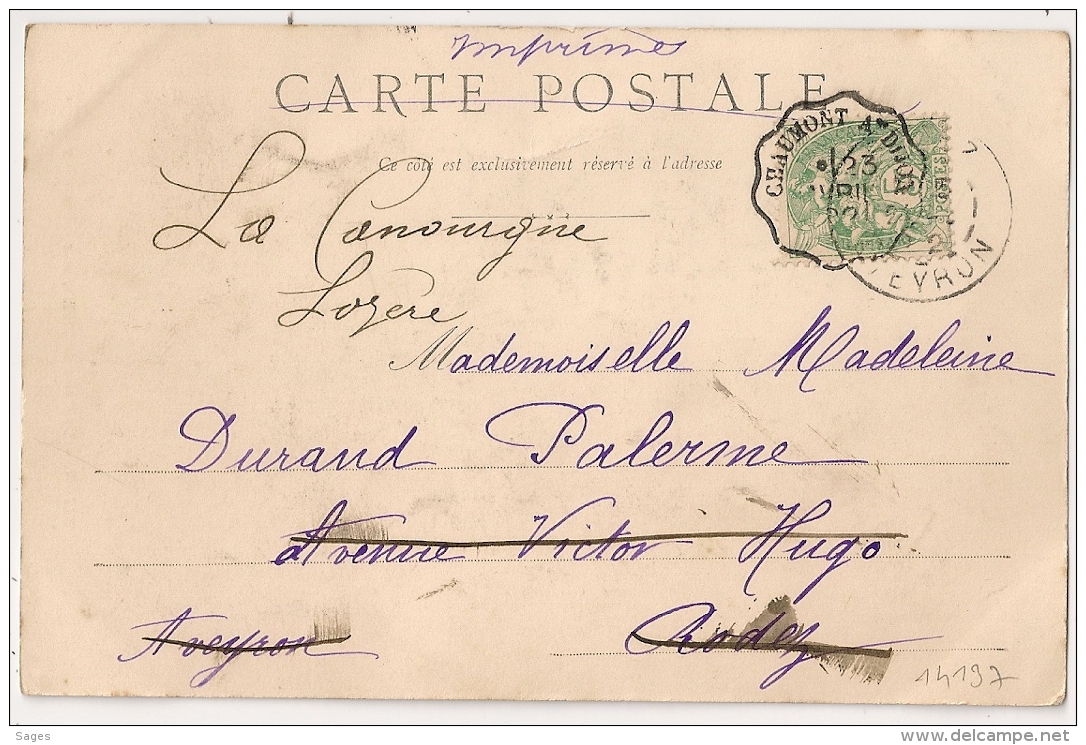 Imprimés
CARTE POSTALE
Ce côté est exclusivement réservé à l'adresse
CHAUMONT A DIJON
23
AVRIL
EYRON
La Canourgue
Lozère
Mademoiselle Madeleine
Durand Palerme
Avenue Victor Hugo
Aveyron Rodez
14197
Sages
www.delcampe.net